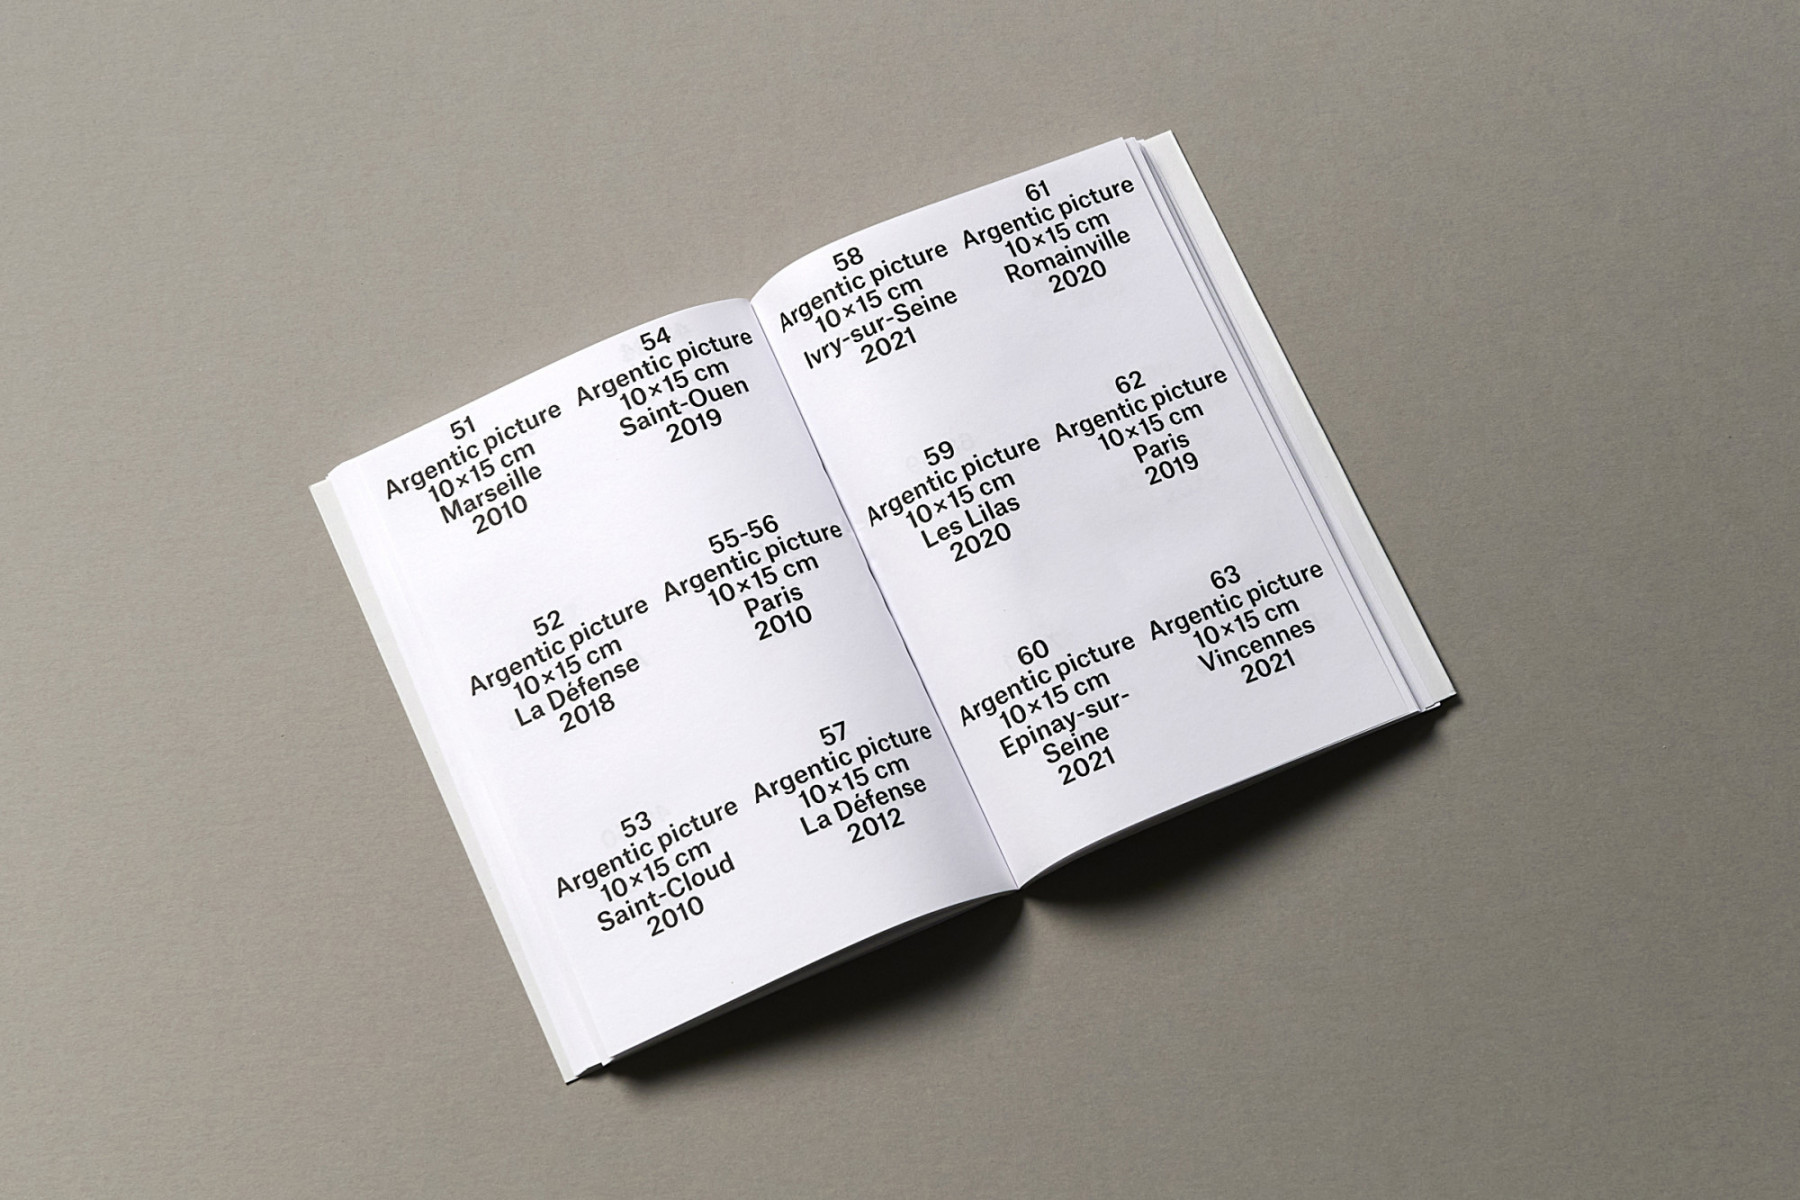 51
Argentic picture
10×15 cm
Marseille
2010
52
Argentic picture
10×15 cm
La Défense
2018
53
Argentic picture
10×15 cm
Saint-Cloud
2010
54
Argentic picture
10×15 cm
Saint-Ouen
2019
55-56
Argentic picture
10×15 cm
Paris
2010
57
Argentic picture
10×15 cm
La Défense
2012
58
Argentic picture
10×15 cm
Ivry-sur-Seine
2021
59
Argentic picture
10×15 cm
Les Lilas
2020
60
Argentic picture
10×15 cm
Epinay-sur-
Seine
2021
61
Argentic picture
10×15 cm
Romainville
2020
62
Argentic picture
10×15 cm
Paris
2019
63
Argentic picture
10×15 cm
Vincennes
2021